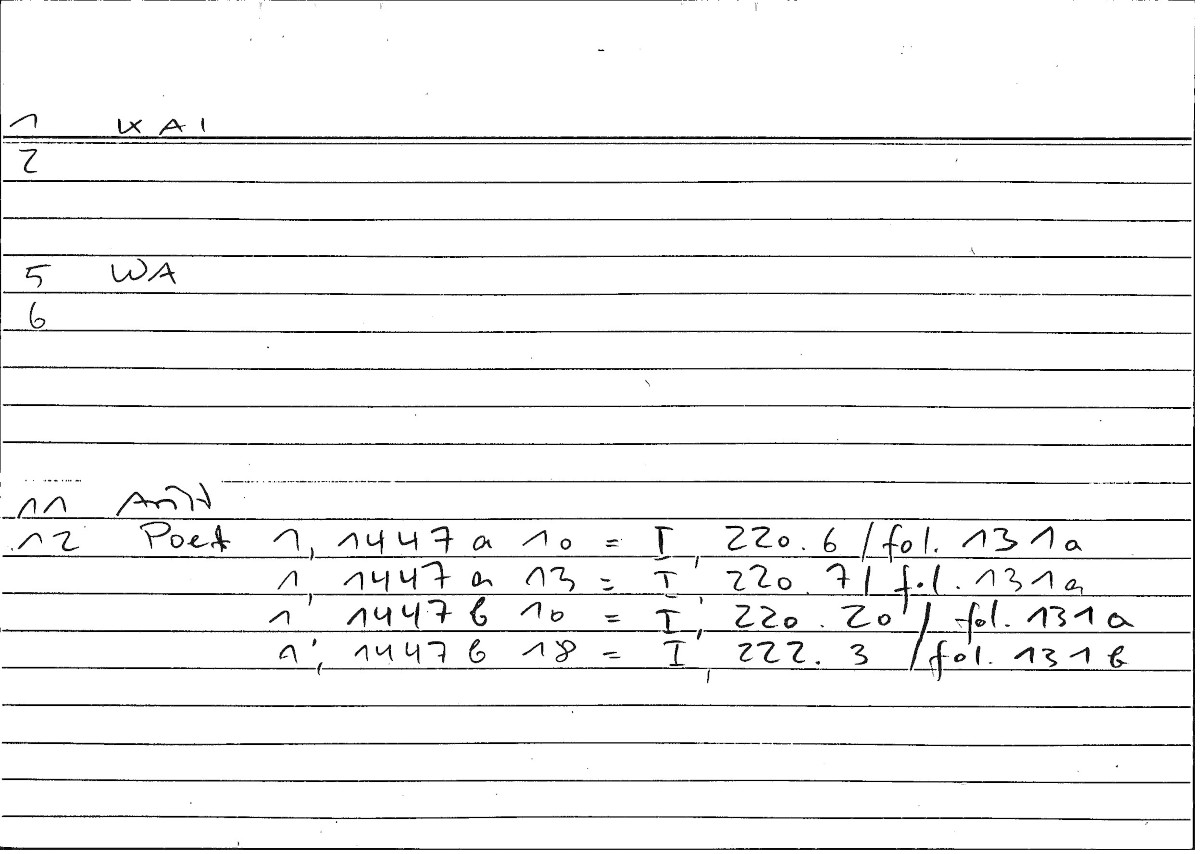 1 KAI
2
5 WA
6
11
12 Poet 1, 1447 a 10 = I, 220.6 / fol. 131a
1, 1447 a 13 = I, 220.7 / fol. 131a
1, 1447 b 10 = I, 220.20 / fol. 131a
1, 1447 b 18 = I, 222.3 / fol. 131b